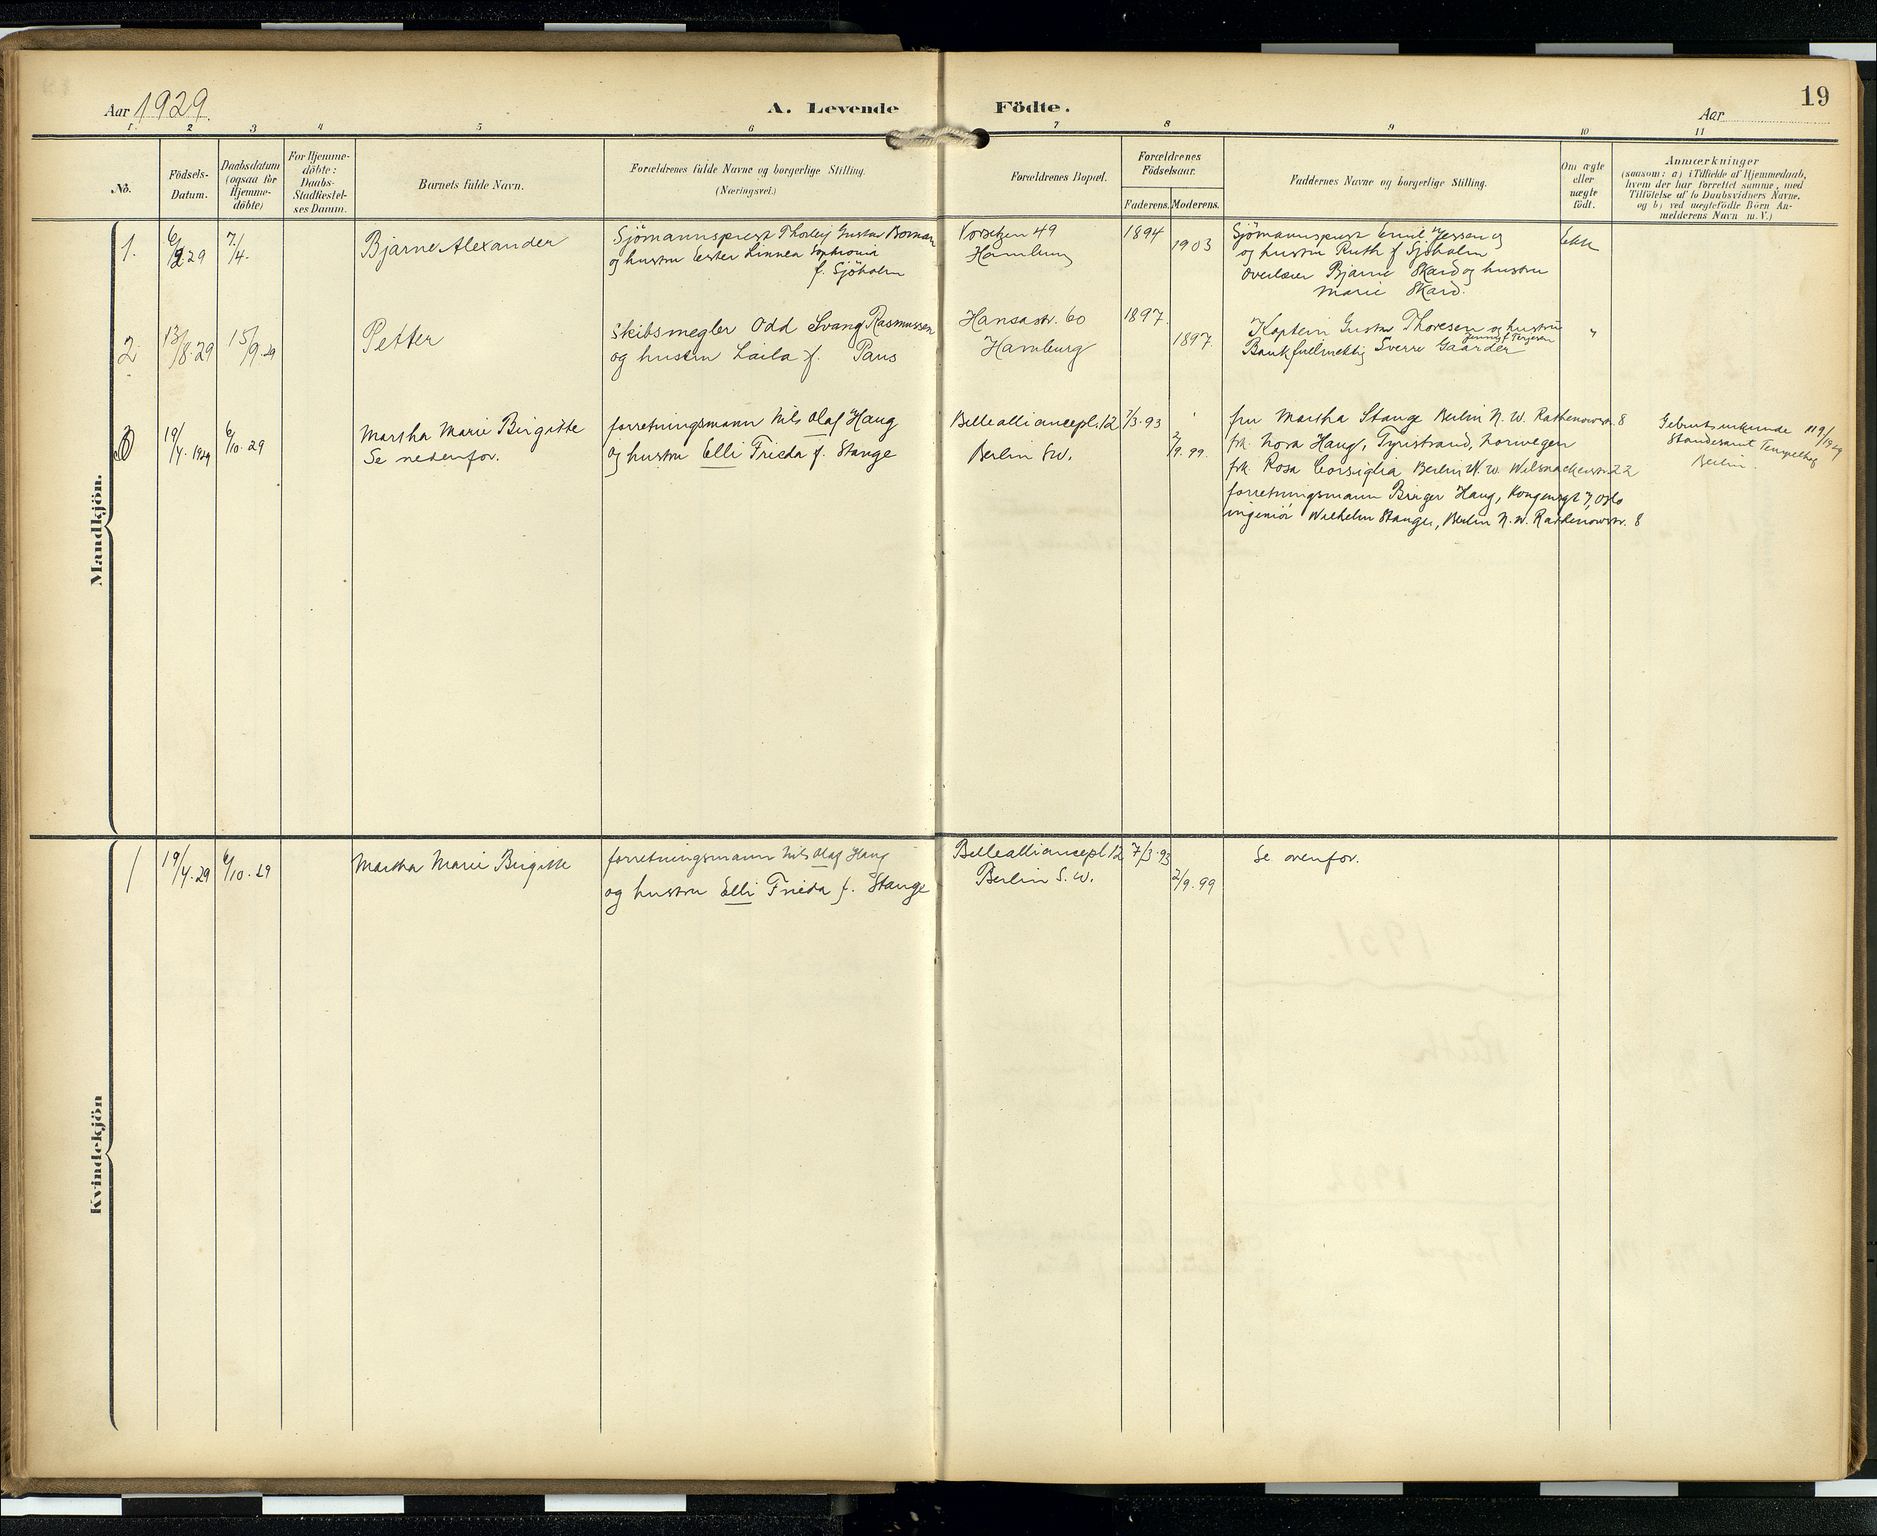 Aar 1929.
A. Levende Födte.
Aar
19
1. 2 3 4 5 6 7 8 9 10 11
No.
Födsels-
Datum.
Daabsdatum
(ogsaa for
Hjemme-
döbte)
For Hjemme-
döbte:
Daabs-
Stadfæstel-
ses Datum.
Barnets fulde Navn.
Forældrenes fulde Navne og borgerlige Stilling.
(Næringsvei.)
Forældrenes Bopæl.
Forældrenes
Födselsaar.
Faderens. Moderens.
Faddernes Navne og borgerlige Stilling.
Om ægte
eller
uægte
födt.
Anmærkninger
(saasom: a) i Tilfælde af Hjemmedaab,
hvem der har forrettet samme, med
Tilföielse af to Daabsvidners Navne.
og b) ved uægtefödte Börn An-
melderens Navn m. V.)
Mandkjön.
1. 6/2 29 7/4. Bjarne Alexander
Sjömannsprest Thorleif Gustav Boman
og hustru Ester Linnea Sophronia
f. Sjöholm
Vorsetzen 49
Hamburg
1894
1903
Sjömannsprest Emil Jessen og
og hustru Ruth f Sjöholm
Overlærer Bjarne Skard og hustru
Marie Skard.
Ekte
2. 13/8.29 15/9.29 Petter
Skibsmegler Odd Svang Rasmussen
og hustru Laila f. Paus
Hansastr. 60
Hamburg
1897.
1897.
Kaptein Gustav Thoresen og hustru
Jenny f. Terjesen
Bankfullmektig Sverre Gaarder
"
3 19/4.1929 6/10.29 Martha Marie Birgitte
Se nedenfor.
forretningsmann Nils Olaf Haug
og hustru Elli Frieda f. Stange
Bellealliancepl. 12
Berlin SW.
7/3.93
2/9.99.
fru Martha Stange Berlin N.W. Rathenowstr. 8
frk. Nora Haug, Tyristrand, Norwegen
frk. Rosa Corsiglia Berlin N.W. Wilsnackerstr. 22
forretningsmann Birger Haug, Kongensgt 7, Oslo
ingeniör Wilhelm Stange, Berlin N.W. Rathenowstr. 8
Geburtsurkunde 119/1929
Standesamt Tempelhof
Berlin.
Kvindekjön
1 19/4.29 6/10.29 Martha Marie Birgitte
forretningsmann Nils Olaf Haug
og hustru Elli Frieda f. Stange
Bellealliancepl. 12
Berlin S.W.
7/3.93
2/9.99
Se ovenfor.